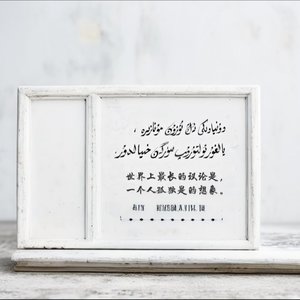 دۇنيادىكى ئەڭ ئۇزۇن مۇنازىرە،
يالغۇز ئولتۇرۇپ سۈرگەن خىيالدۇر
世界上最长的议论是，
一个人孤独是的想象。